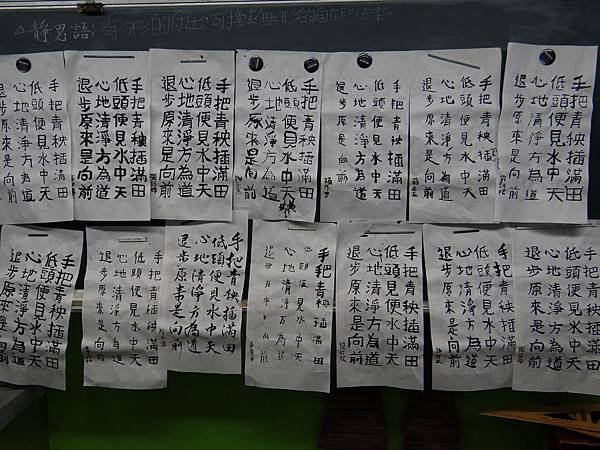 △靜思語:有形的付出,可換來無形的自在和快樂。
手把青秧插滿田
低頭便見水中天
心地清淨方為道
退步原來是向前
手把青秧插滿田
低頭便見水中天
心地清淨方為道
退步原來是向前
手把青秧插滿田
低頭便見水中天
心地清淨方為道
退步原來是向前
手把青秧插滿田
低頭便見水中天
心地清淨方為道
退步原來是向前
手把青秧插滿田
低頭便見水中天
心地清淨方為道
退步原來是向前
手把青秧插滿田
低頭便見水中天
心地清淨方為道
退步原來是向前
手把青秧插滿田
低頭便見水中天
心地清淨方為道
退步原來是向前
手把青秧插滿田
低頭便見水中天
心地清淨方為道
退步原來是向前
手把青秧插滿田
低頭便見水中天
心地清淨方為道
退步原來是向前
手把青秧插滿田
低頭便見水中天
心地清淨方為道
退步原來是向前
手把青秧插滿田
低頭便見水中天
心地清淨方為道
退步原來是向前
手把青秧插滿田
低頭便見水中天
心地清淨方為道
退步原來是向前
手把青秧插滿田
低頭便見水中天
心地清淨方為道
退步原來是向前
手把青秧插滿田
低頭便見水中天
心地清淨方為道
退步原來是向前